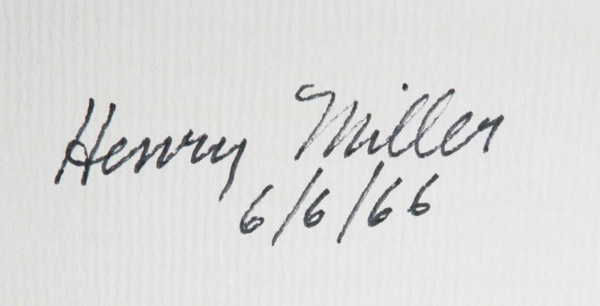 Henry Miller
6/6/66